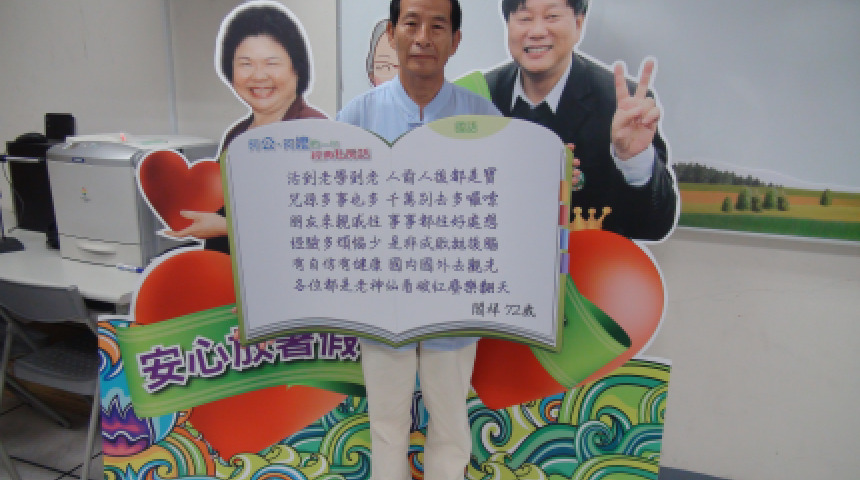 阿公、阿嬤的一句
經典私房話
活到老學到老 人前人後都是寶
兒孫多事也多 千萬別去多囉嗦
朋友來親戚往 事事都往好處想
經驗多煩惱少 是非成敗拋後腦
有自信有健康 國內國外去觀光
各位都是老神仙看破紅塵樂翻天
閻祥 72歲
安心放暑假